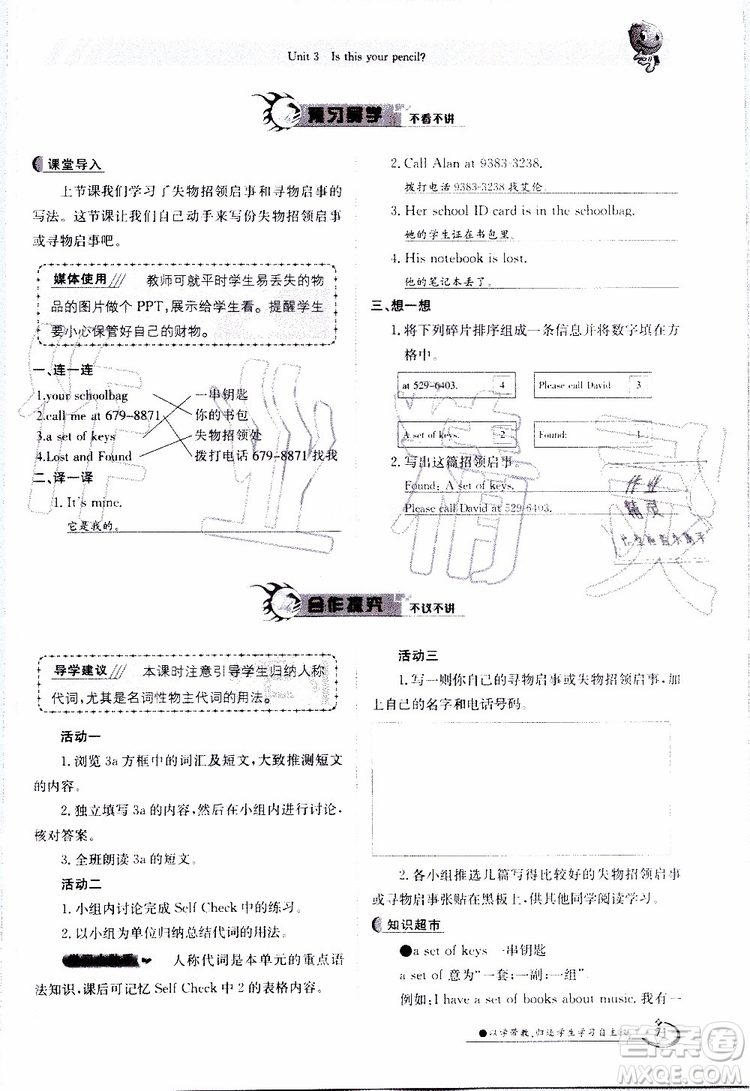 Unit 3 Is this your pencil?
预习导学 不看不讲
课堂导入
上节课我们学习了失物招领启事和寻物启事的
写法。这节课让我们自己动手来写份失物招领启事
或寻物启事吧。
媒体使用 教师可就平时学生易丢失的物
品的图片做个 PPT,展示给学生看。提醒学生
要小心保管好自己的财物。
一、连一连
1.your schoolbag 一串钥匙
2.call me at 679-8871 你的书包
3.a set of keys 失物招领处
4.Lost and Found 拨打电话 679-8871 找我
二、译一译
1. It's mine.
它是我的。
2. Call Alan at 9383-3238.
拨打电话 9383-3238 找艾伦。
3. Her school ID card is in the schoolbag.
她的学生证在书包里。
4. His notebook is lost.
他的笔记本丢了。
三、想一想
1. 将下列碎片排序组成一条信息并将数字填在方
格中。
at 529-6403. 4 Please call David 3
A set of keys. 2 Found: 1
2. 写出这篇招领启事。
Found: A set of keys.
Please call David at 529-6403.
作业
精灵
合作探究 不议不讲
导学建议 本课时注意引导学生归纳人称
代词,尤其是名词性物主代词的用法。
活动一
1. 浏览 3a 方框中的词汇及短文,大致推测短文
的内容。
2. 独立填写 3a 的内容,然后在小组内进行讨论,
核对答案。
3. 全班朗读 3a 的短文。
活动二
1. 小组内讨论完成 Self Check 中的练习。
2. 以小组为单位归纳总结代词的用法。
人称代词是本单元的重点语
法知识,课后可记忆 Self Check 中 2 的表格内容。
活动三
1. 写一则你自己的寻物启事或失物招领启事,加
上自己的名字和电话号码。
2. 各小组推选几篇写得比较好的失物招领启事
或寻物启事张贴在黑板上,供其他同学阅读学习。
知识超市
●a set of keys 一串钥匙
a set of 意为“一套;一副;一组”。
例如:I have a set of books about music. 我有一
●以学带教,归还学生学习自主